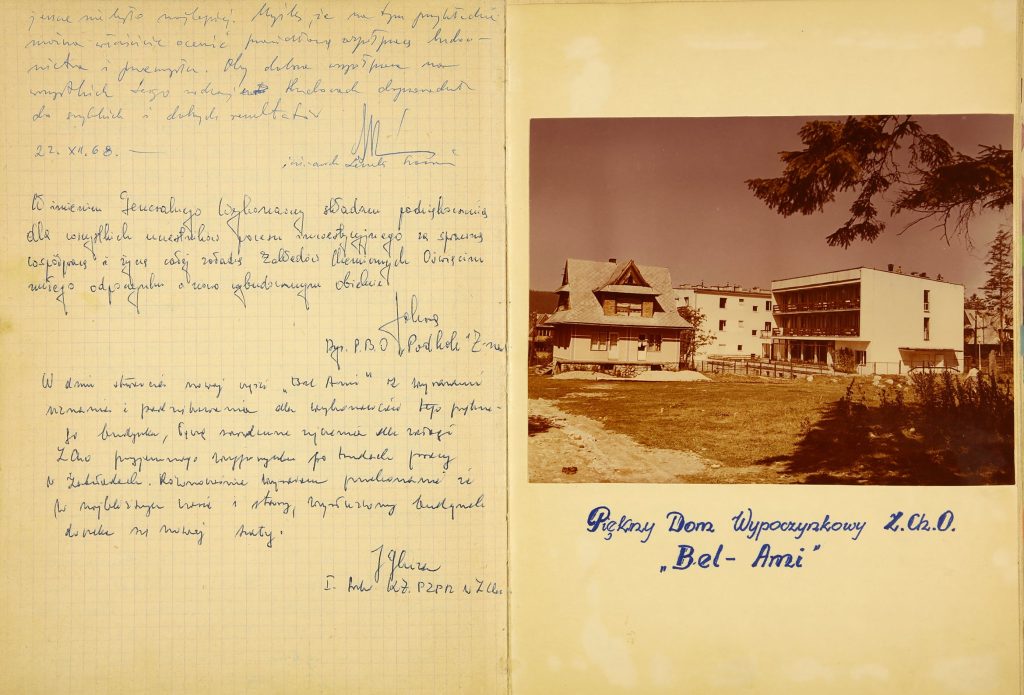 jeszcze nie było najlepiej. Myślę że na tym przykładzie
można właściwie ocenić prawidłową współpracę budow-
nictwa i przemysłu. Oby dobra współpraca na
wszystkich tego rodzaju budowach doprowadziła
do szybkich i dobrych rezultatów
22. XII. 68. —
W imieniu Generalnego Wykonawcy składam podziękowania
dla wszystkich uczestników procesu inwestycyjnego za sprawną
współpracę i życzę całej załodze Zakładów Chemicznych Oświęcim
miłego odpoczynku o nowo wybudowanym obiekcie
Dyr. P.B.O "Podhale" Z-ne
W dniu otwarcia nowej części „Bel Ami" z wyrazami
uznania i podziękowania dla wykonawców tego piękne-
go budynku, łączę serdeczne życzenia dla załogi
ZChO przyjemnego wypoczynku po trudach pracy
w Zakładach. Równocześnie wyrażam przekonanie że
w najbliższym czasie i stary, wysłużony budynek
doczeka się nowej szaty.
I. Sekr KZ. PZPR w ZCho
Piękny Dom Wypoczynkowy Z.Ch.O.
„Bel-Ami"